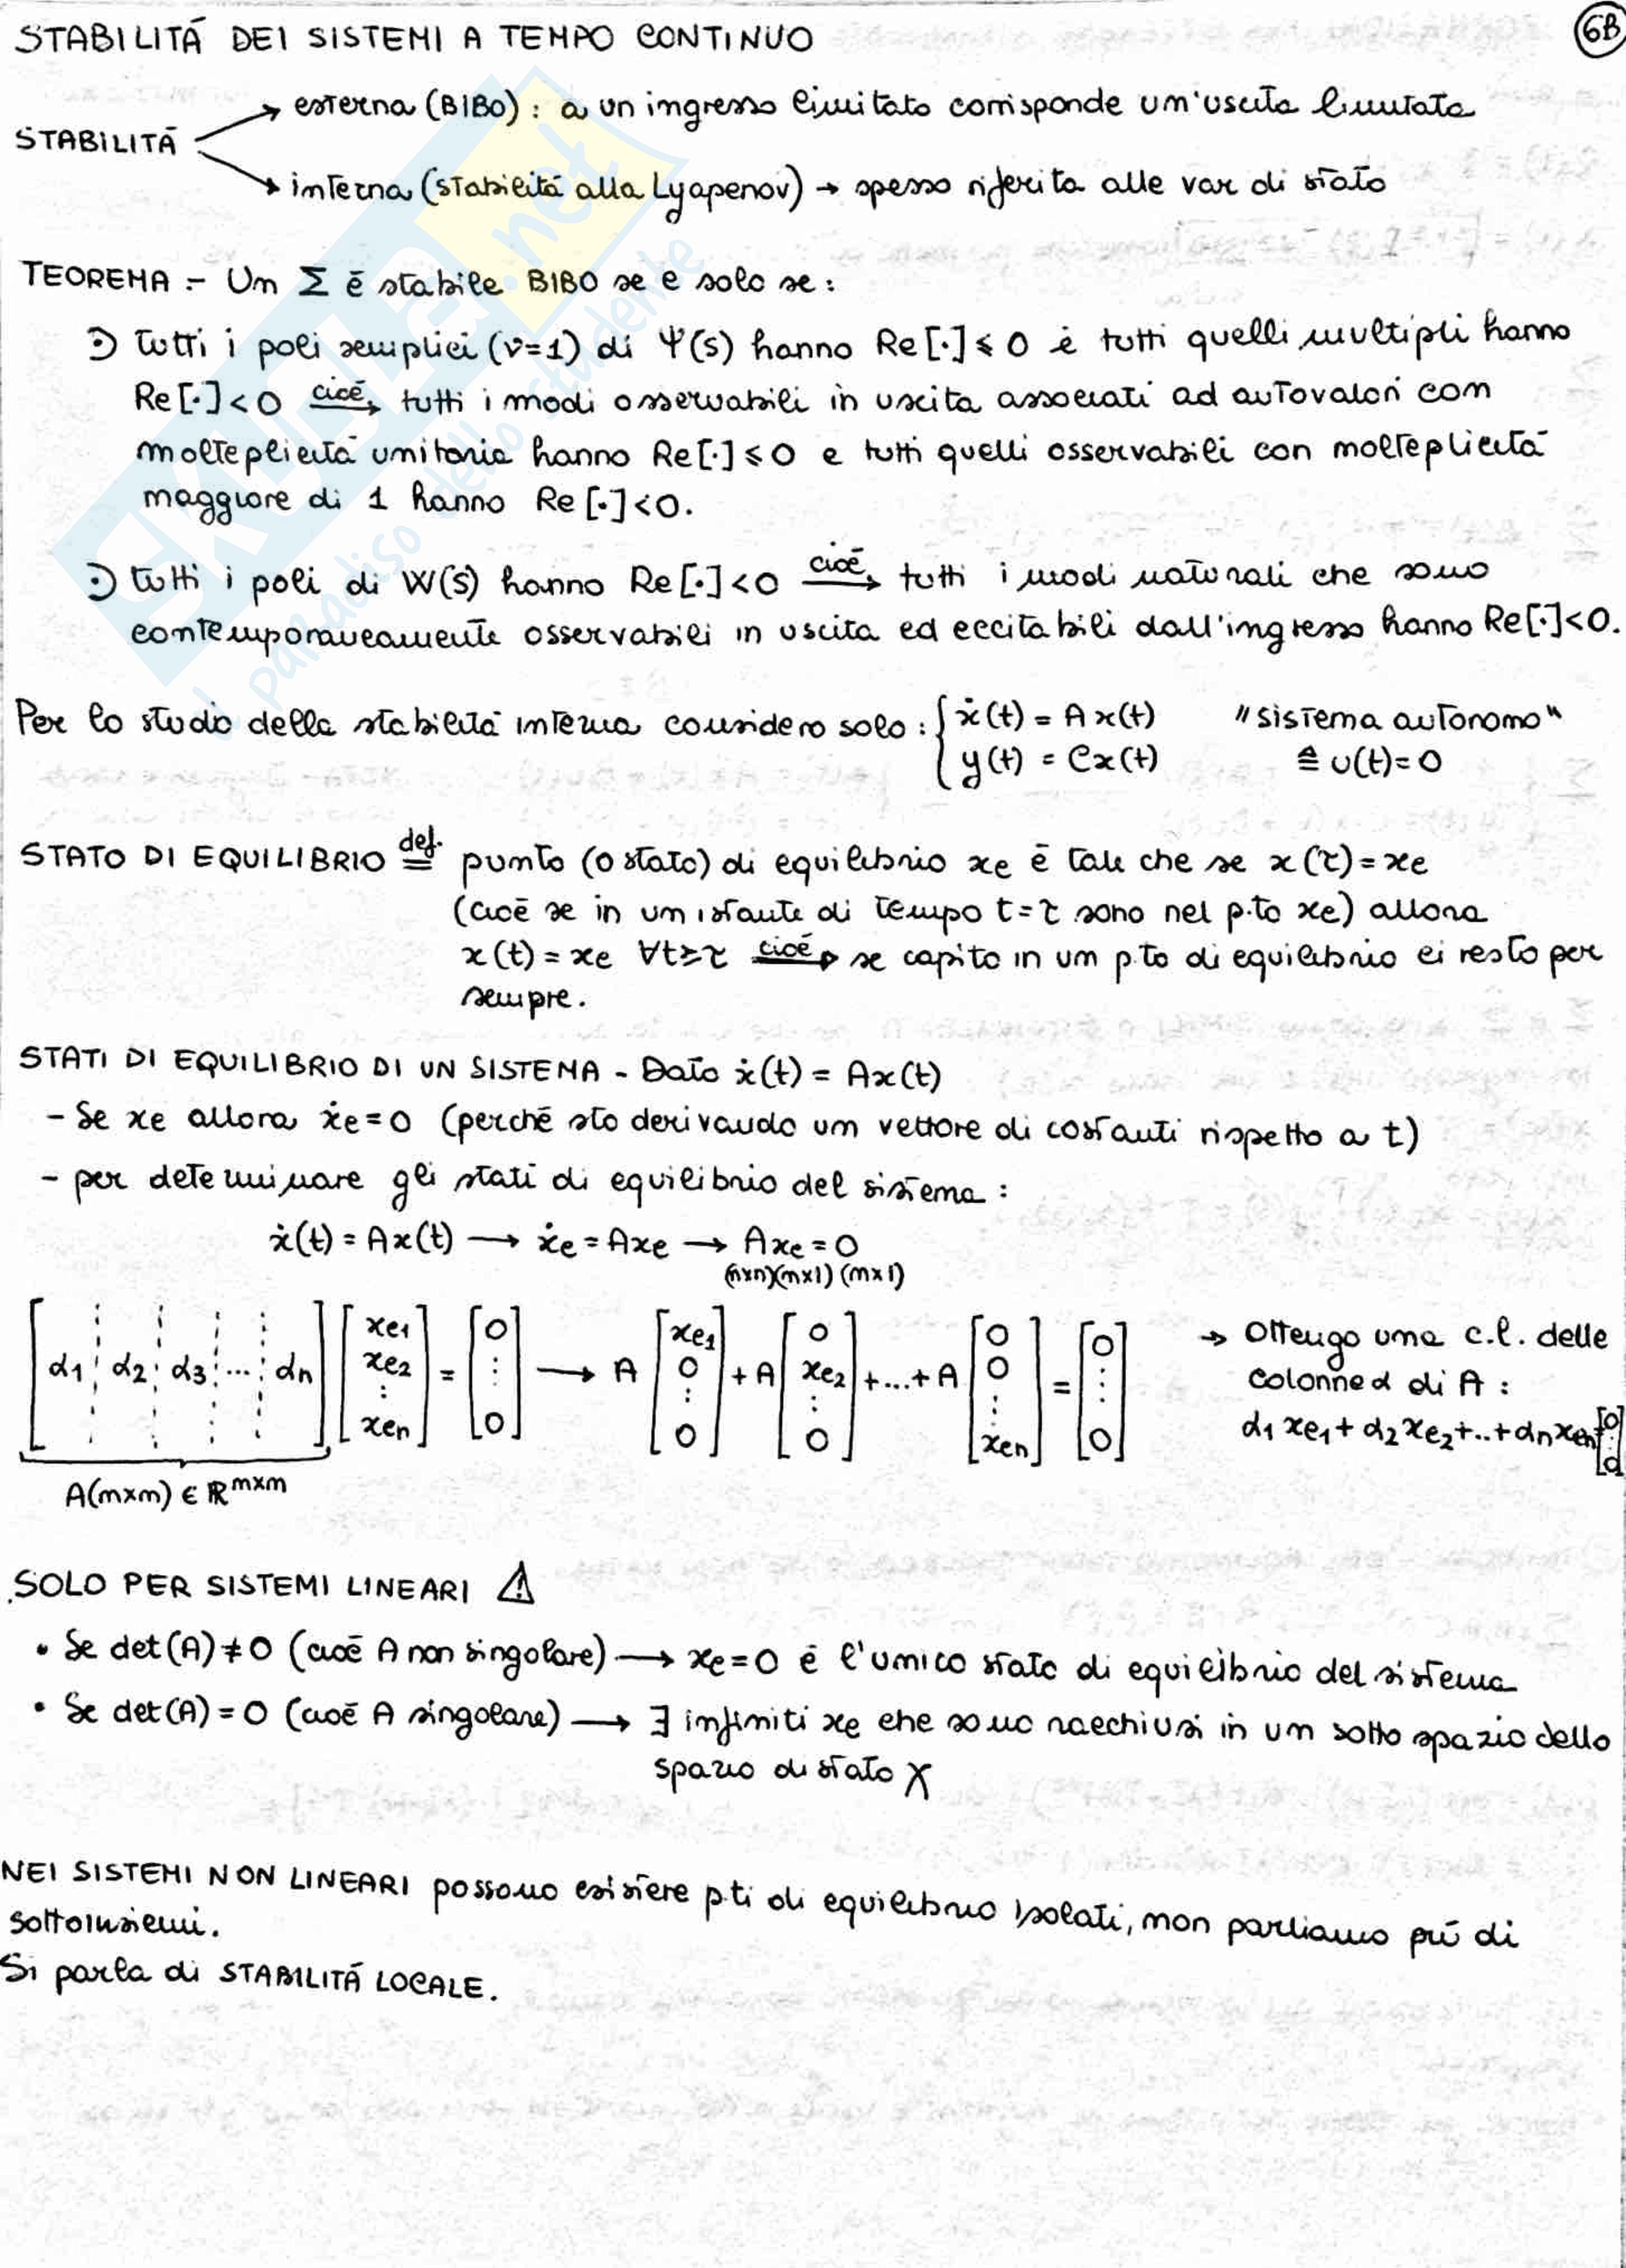 STABILITÁ DEI SISTEMI A TEMPO CONTINUO
6B
STABILITÁ
esterna (BIBO): a un ingresso limitato corrisponde un'uscita limitata
interna (stabilitá alla Lyapenov) → spesso riferita alle var di stato
TEOREMA :- Un Σ é stabile BIBO se e solo se:
·) tutti i poli semplici (ν=1) di Ψ(s) hanno Re[·] ≤ 0 e tutti quelli multipli hanno
Re[·] < 0 cioé→ tutti i modi osservabili in uscita associati ad autovalori con
molteplicitá unitaria hanno Re[·] ≤ 0 e tutti quelli osservabili con molteplicitá
maggiore di 1 hanno Re[·]<0.
·) tutti i poli di W(s) hanno Re[·]<0 cioé→ tutti i modi naturali che sono
contemporaneamente osservabili in uscita ed eccitabili dall'ingresso hanno Re[·]<0.
Per lo studio della stabilitá interna considero solo: { ẋ(t) = Ax(t) "sistema autonomo"
y(t) = Cx(t) ≙ u(t)=0
STATO DI EQUILIBRIO def.= punto (o stato) di equilibrio xe é tale che se x(τ)=xe
(cioé se in un istante di tempo t=τ sono nel p.to xe) allora
x(t)=xe ∀t≥τ cioé→ se capito in un p.to di equilibrio ci resto per
sempre.
STATI DI EQUILIBRIO DI UN SISTEMA - Dato ẋ(t) = Ax(t)
- Se xe allora ẋe=0 (perché sto derivando un vettore di costanti rispetto a t)
- per determinare gli stati di equilibrio del sistema:
ẋ(t) = Ax(t) → ẋe = Axe → Axe = 0
(n×n)(n×1) (n×1)
[α1 ⋮ α2 ⋮ α3 ⋮ ... ⋮ αn] [xe1 xe2 ⋮ xen] = [0 ⋮ 0] → A [xe1 0 ⋮ 0] + A [0 xe2 ⋮ 0] + ... + A [0 0 ⋮ xen] = [0 ⋮ 0]
→ Ottengo una c.l. delle
colonne α di A:
α1 xe1 + α2 xe2 + .. + αn xen = [0 ⋮ 0]
A(n×n) ∈ ℝ^n×n
SOLO PER SISTEMI LINEARI ⚠
• Se det(A) ≠ 0 (cioé A non singolare) → xe=0 é l'unico stato di equilibrio del sistema
• Se det(A) = 0 (cioé A singolare) → ∃ infiniti xe che sono racchiusi in un sotto spazio dello
spazio di stato X
NEI SISTEMI NON LINEARI possono esistere p.ti di equilibrio isolati, non parliamo piú di
sottoinsiemi.
Si parla di STABILITÁ LOCALE.
SKUOLA.net
il paradiso dello studente